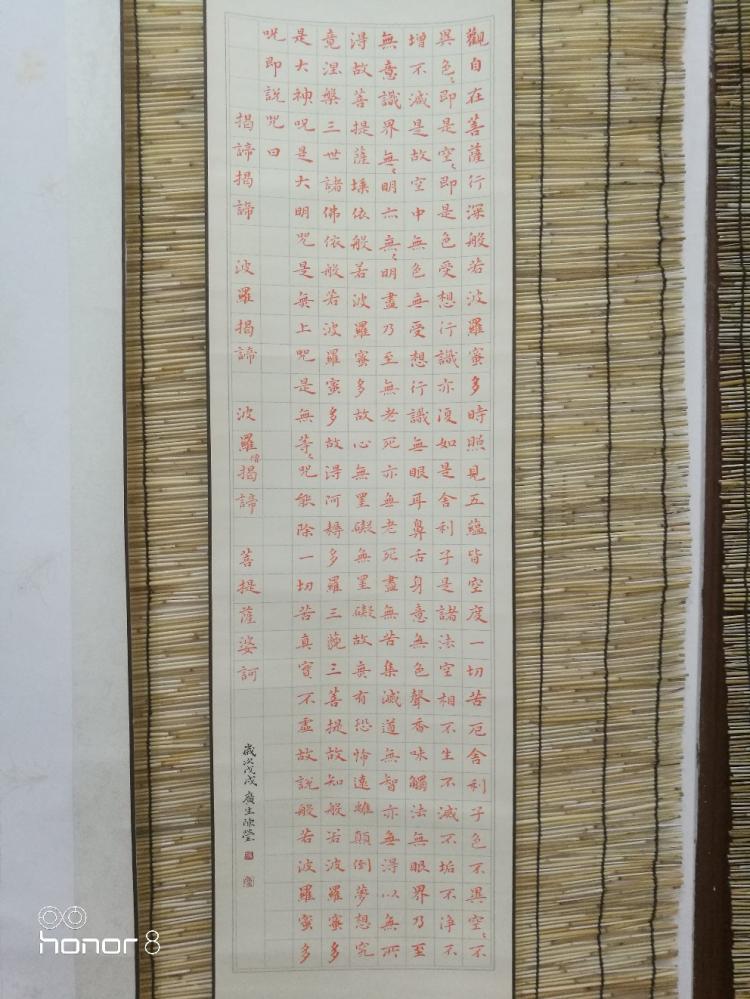 觀自在菩薩行深般若波羅蜜多時照見五蘊皆空度一切苦厄舍利子色不異空〻不
異色〻即是空〻即是色受想行識亦復如是舍利子是諸法空相不生不滅不垢不淨不
增不滅是故空中無色無受想行識無眼耳鼻舌身意無色聲香味觸法無眼界乃至
無意識界無〻明亦無〻明盡乃至無老死亦無老死盡無苦集滅道無智亦無得以無所
得故菩提薩埵依般若波羅蜜多故心無罣礙無罣礙故無有恐怖遠離顛倒夢想究
竟涅槃三世諸佛依般若波羅蜜多故得阿耨多羅三藐三菩提故知般若波羅蜜多
是大神咒是大明咒是無上咒是無等〻咒能除一切苦真實不虛故說般若波羅蜜多
咒即說咒曰
揭諦揭諦 波羅揭諦 波羅僧揭諦 菩提薩婆訶
歲次戊戌 廣生陳瑩
honor 8